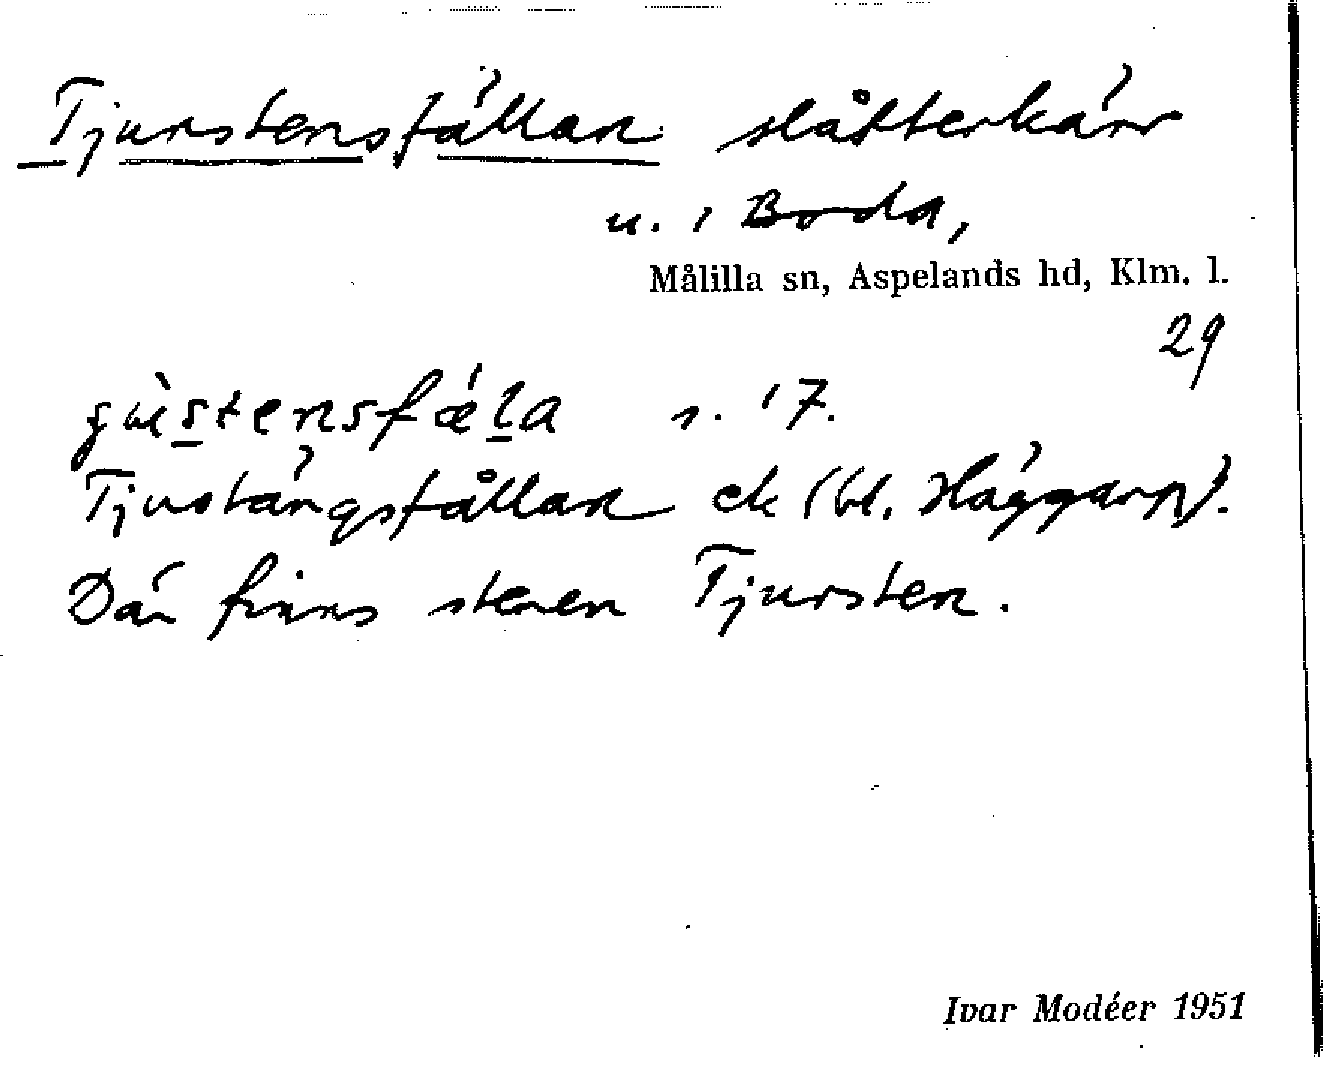 Tjurstensfällan slåtterkärr
u. i Boda,
Målilla sn, Aspelands hd, Klm. l.
29
s. 17.
Tjustängsfållan ek (bl. Häggarp).
Där finns stenen Tjursten.
Ivar Modéer 1951